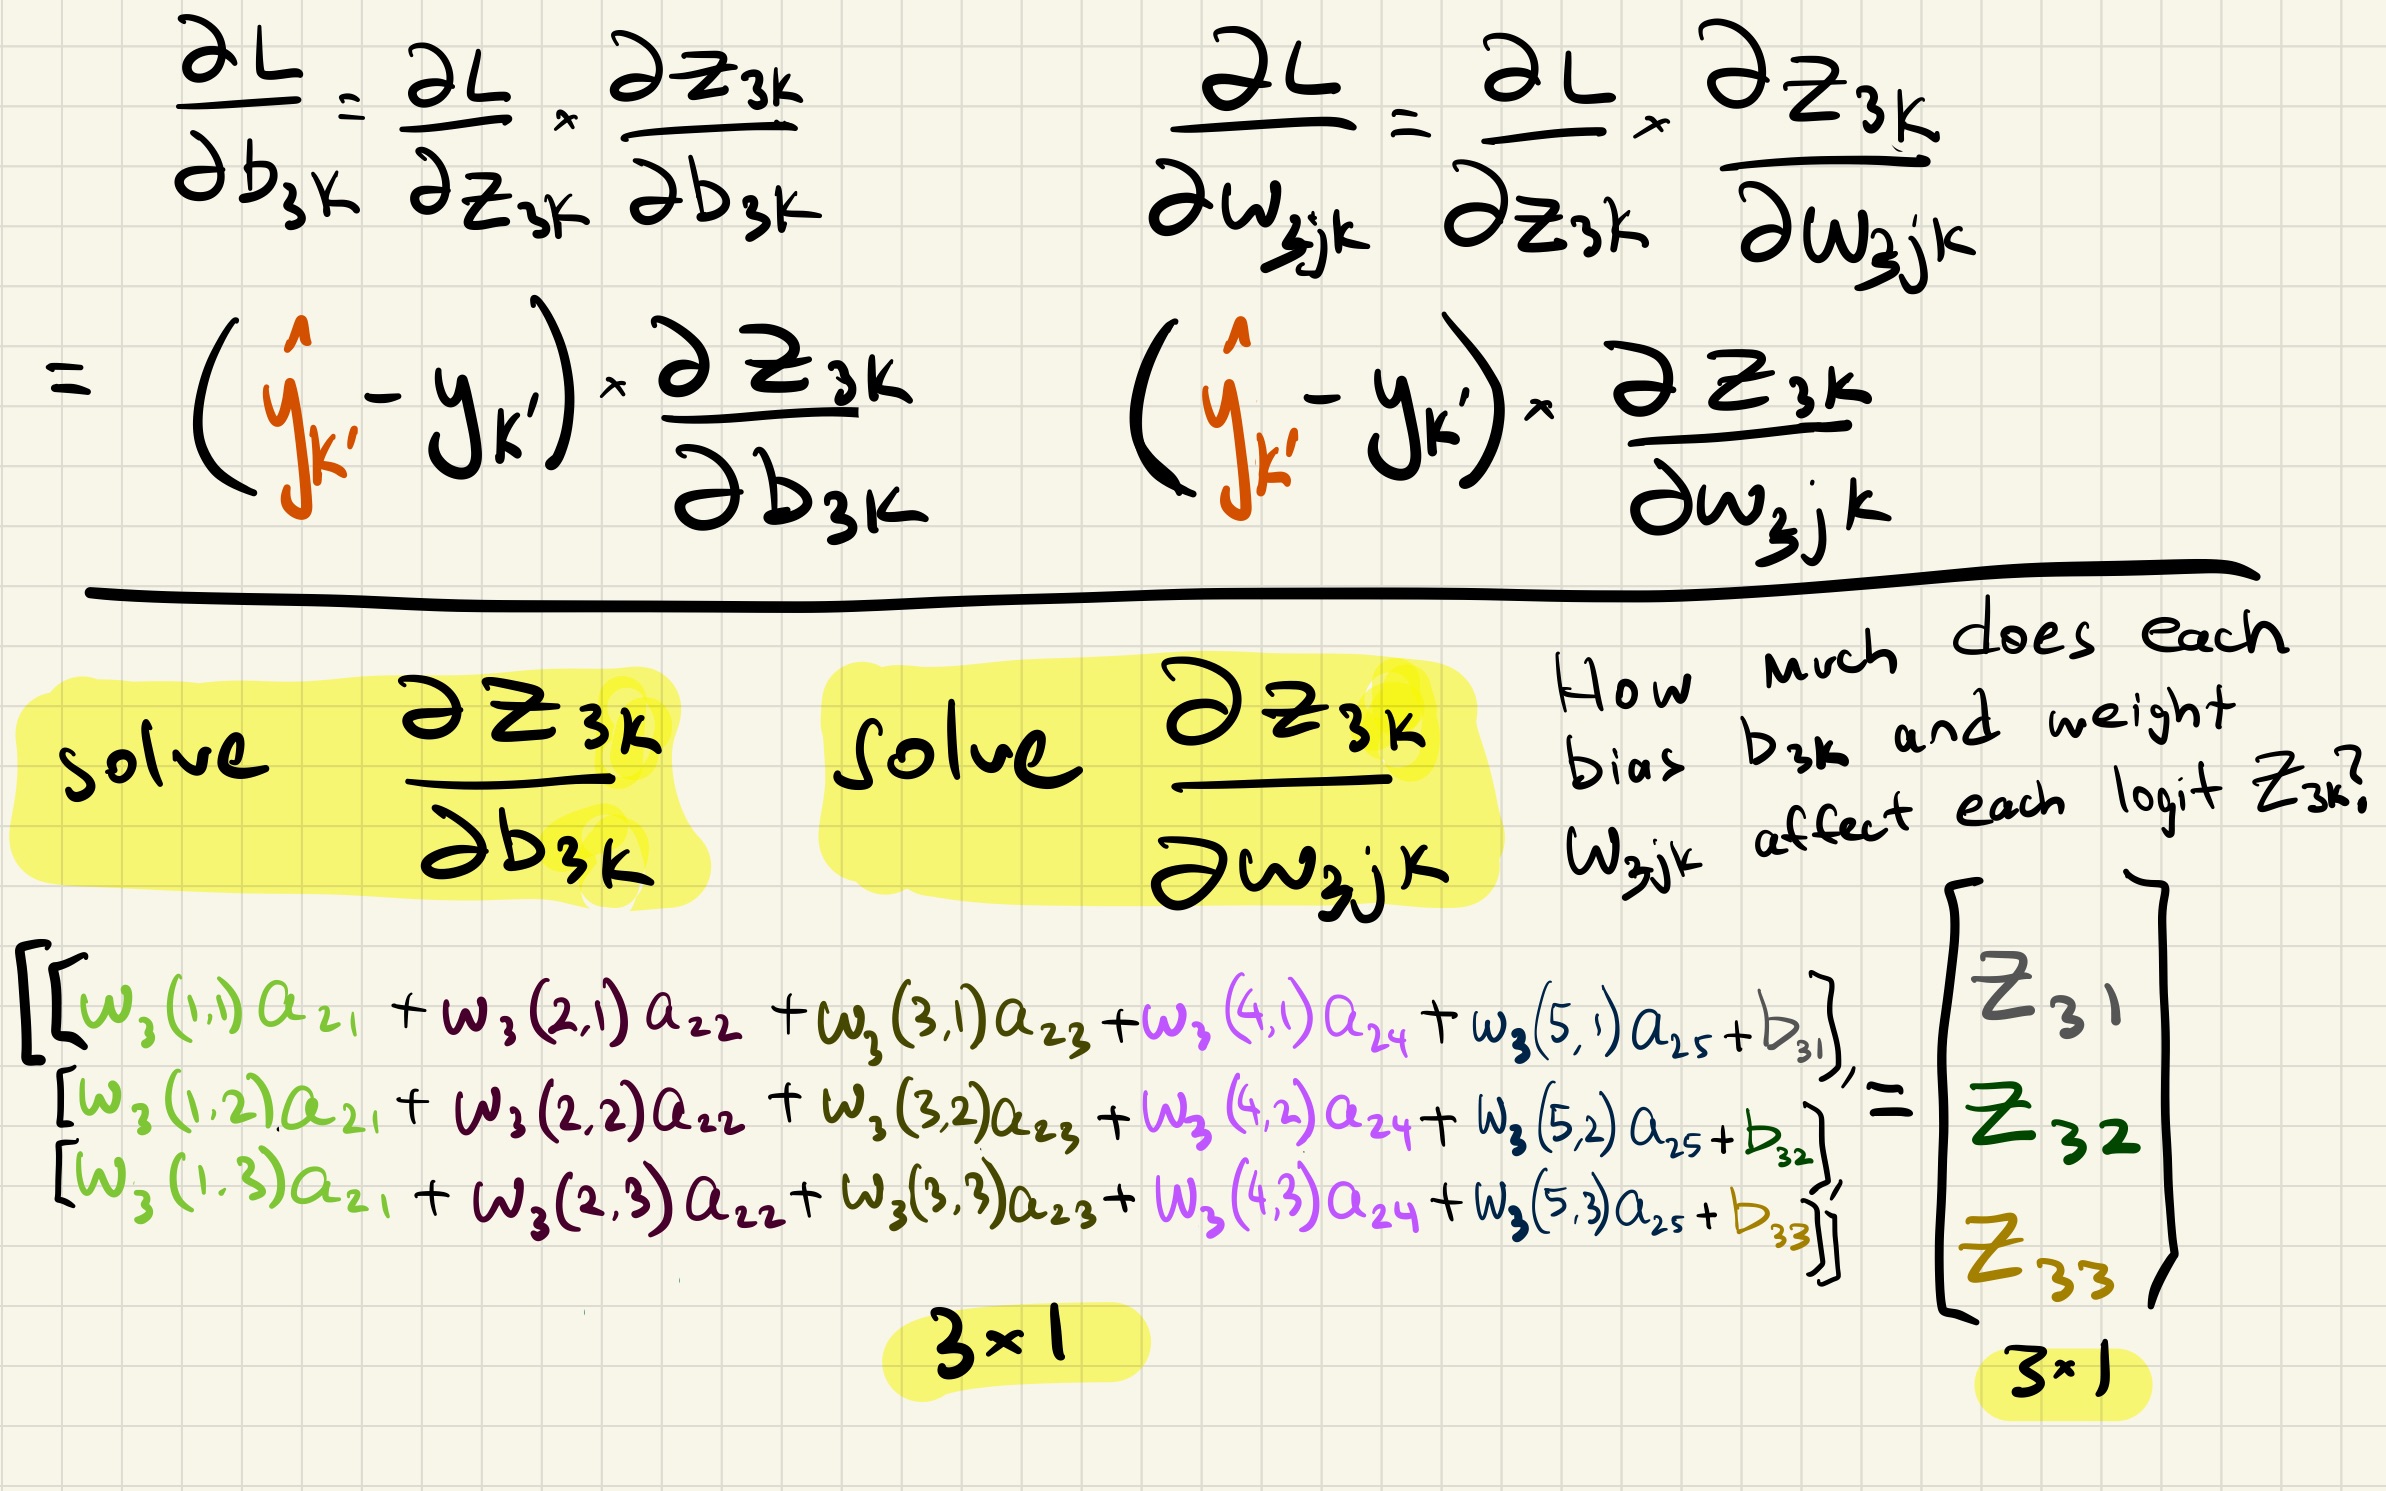 ∂L/∂b₃ₖ = ∂L/∂z₃ₖ × ∂z₃ₖ/∂b₃ₖ
∂L/∂w₃ⱼₖ = ∂L/∂z₃ₖ × ∂z₃ₖ/∂w₃ⱼₖ
= (ŷₖ' - yₖ') × ∂z₃ₖ/∂b₃ₖ
(ŷₖ' - yₖ') × ∂z₃ₖ/∂w₃ⱼₖ
solve ∂z₃ₖ/∂b₃ₖ
solve ∂z₃ₖ/∂w₃ⱼₖ
How much does each
bias b₃ₖ and weight
w₃ⱼₖ affect each logit z₃ₖ?
[[w₃(1,1)a₂₁ + w₃(2,1)a₂₂ + w₃(3,1)a₂₃ + w₃(4,1)a₂₄ + w₃(5,1)a₂₅ + b₃₁],
[w₃(1,2)a₂₁ + w₃(2,2)a₂₂ + w₃(3,2)a₂₃ + w₃(4,2)a₂₄ + w₃(5,2)a₂₅ + b₃₂],
[w₃(1.3)a₂₁ + w₃(2,3)a₂₂ + w₃(3,3)a₂₃ + w₃(4,3)a₂₄ + w₃(5,3)a₂₅ + b₃₃]]
=
[z₃₁
z₃₂
z₃₃]
3×1
3×1